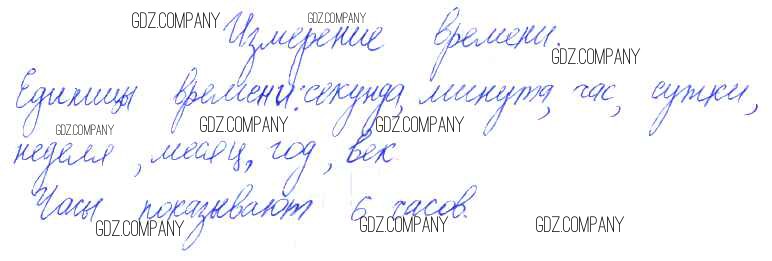 GDZ.COMPANY GDZ.COMPANY
Измерение времени.
GDZ.COMPANY
Единицы времени: секунда, минута, час, сутки,
GDZ.COMPANY GDZ.COMPANY GDZ.COMPANY
неделя, месяц, год, век
Часы показывают 6 часов.
GDZ.COMPANY GDZ.COMPANY GDZ.COMPANY